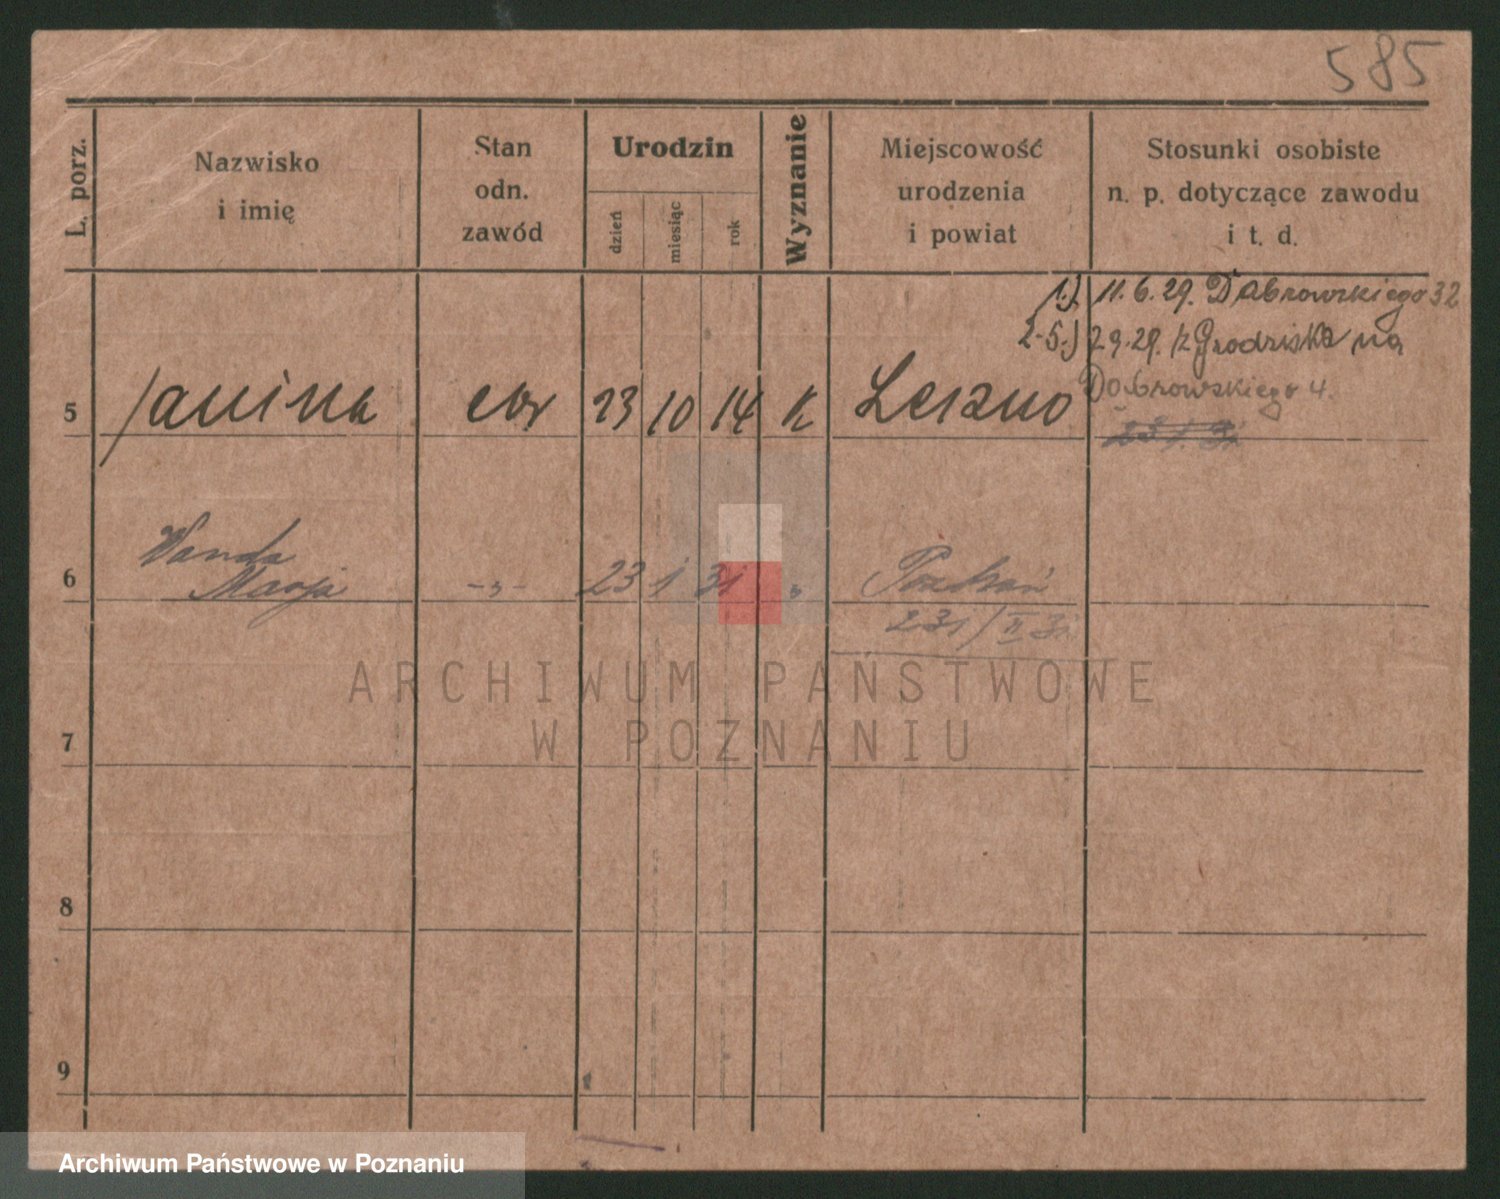 585
L. porz.
Nazwisko
i imię
Stan
odn.
zawód
Urodzin
dzień
miesiąc
rok
Wyznanie
Miejscowość
urodzenia
i powiat
Stosunki osobiste
n. p. dotyczące zawodu
i t. d.
1.) 11.6.29. Dąbrowskiego 32
2-5.) 29.29. z Grodziska na
Dąbrowskiego 4.
5 Janina 23 10 14 k Leszno
6 Wanda
Marja -„- 23 1 31 „ Poznań
231/II 31
7
8
9
ARCHIWUM PAŃSTWOWE
W POZNANIU
Archiwum Państwowe w Poznaniu